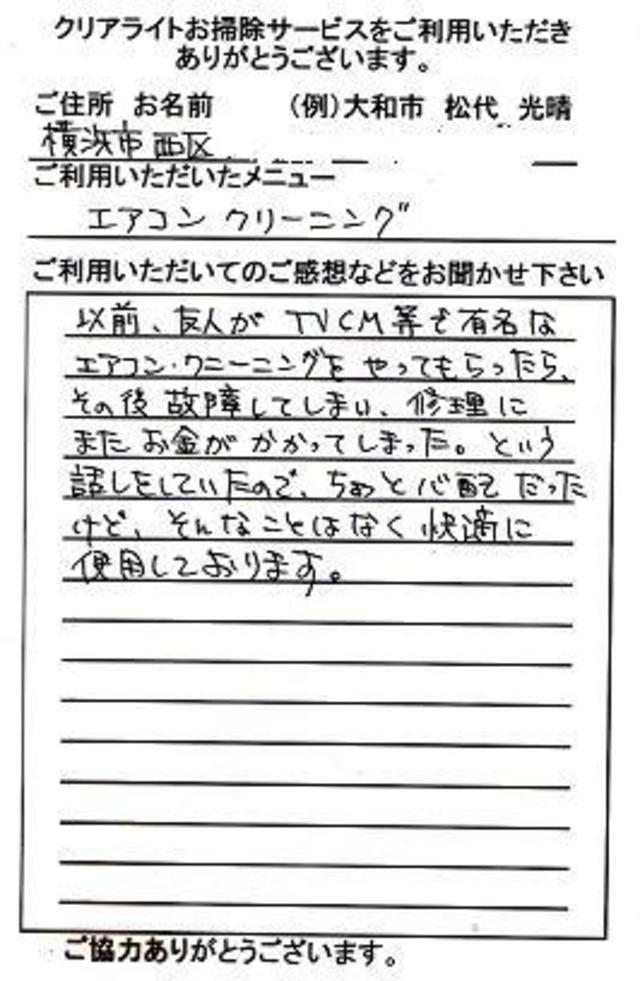 クリアライトお掃除サービスをご利用いただき
ありがとうございます。
ご住所 お名前 (例)大和市 松代 光晴
横浜市西区
ご利用いただいたメニュー
エアコン クリーニング
ご利用いただいてのご感想などをお聞かせ下さい
以前、友人が TVCM等で有名な
エアコン・クニーニングをやってもらったら、
その後故障してしまい、修理に
またお金がかかってしまった。という
話しをしていたので、ちょっと心配だった
けど、そんなことはなく快適に
使用しております。
ご協力ありがとうございます。